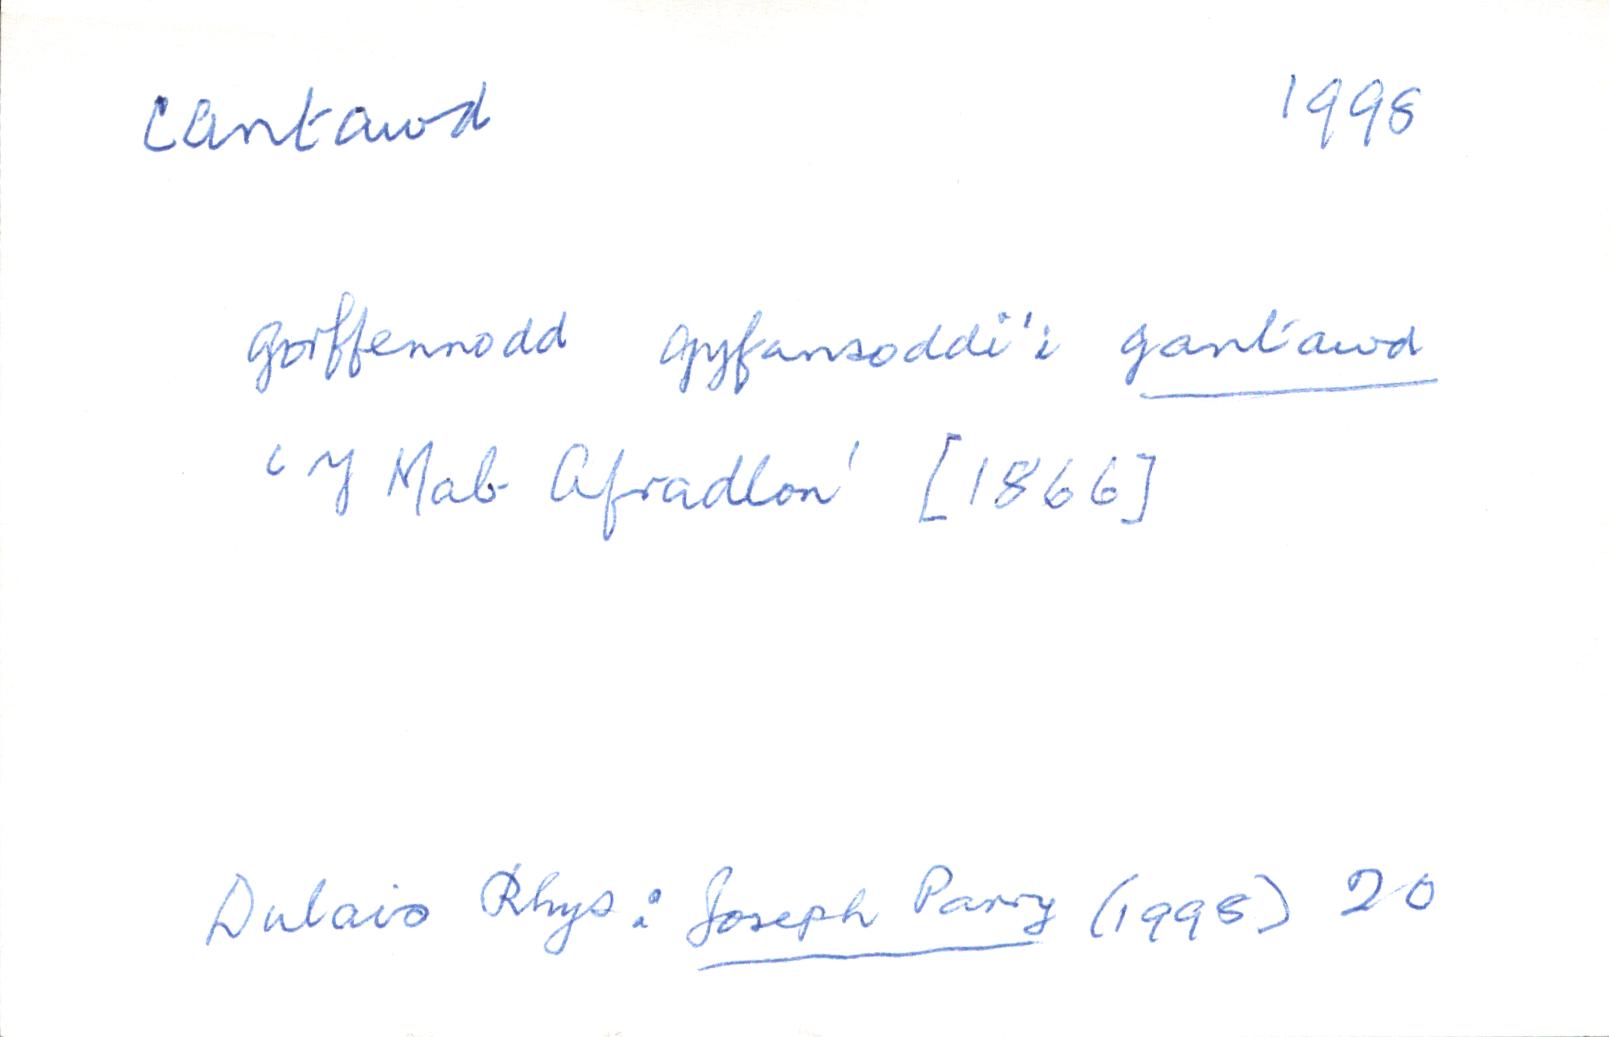 cantawd 1998
gorffennodd gyfansoddi'i gantawd
'Y Mab Afradlon' [1866]
Dulais Rhys: Joseph Parry (1998) 20